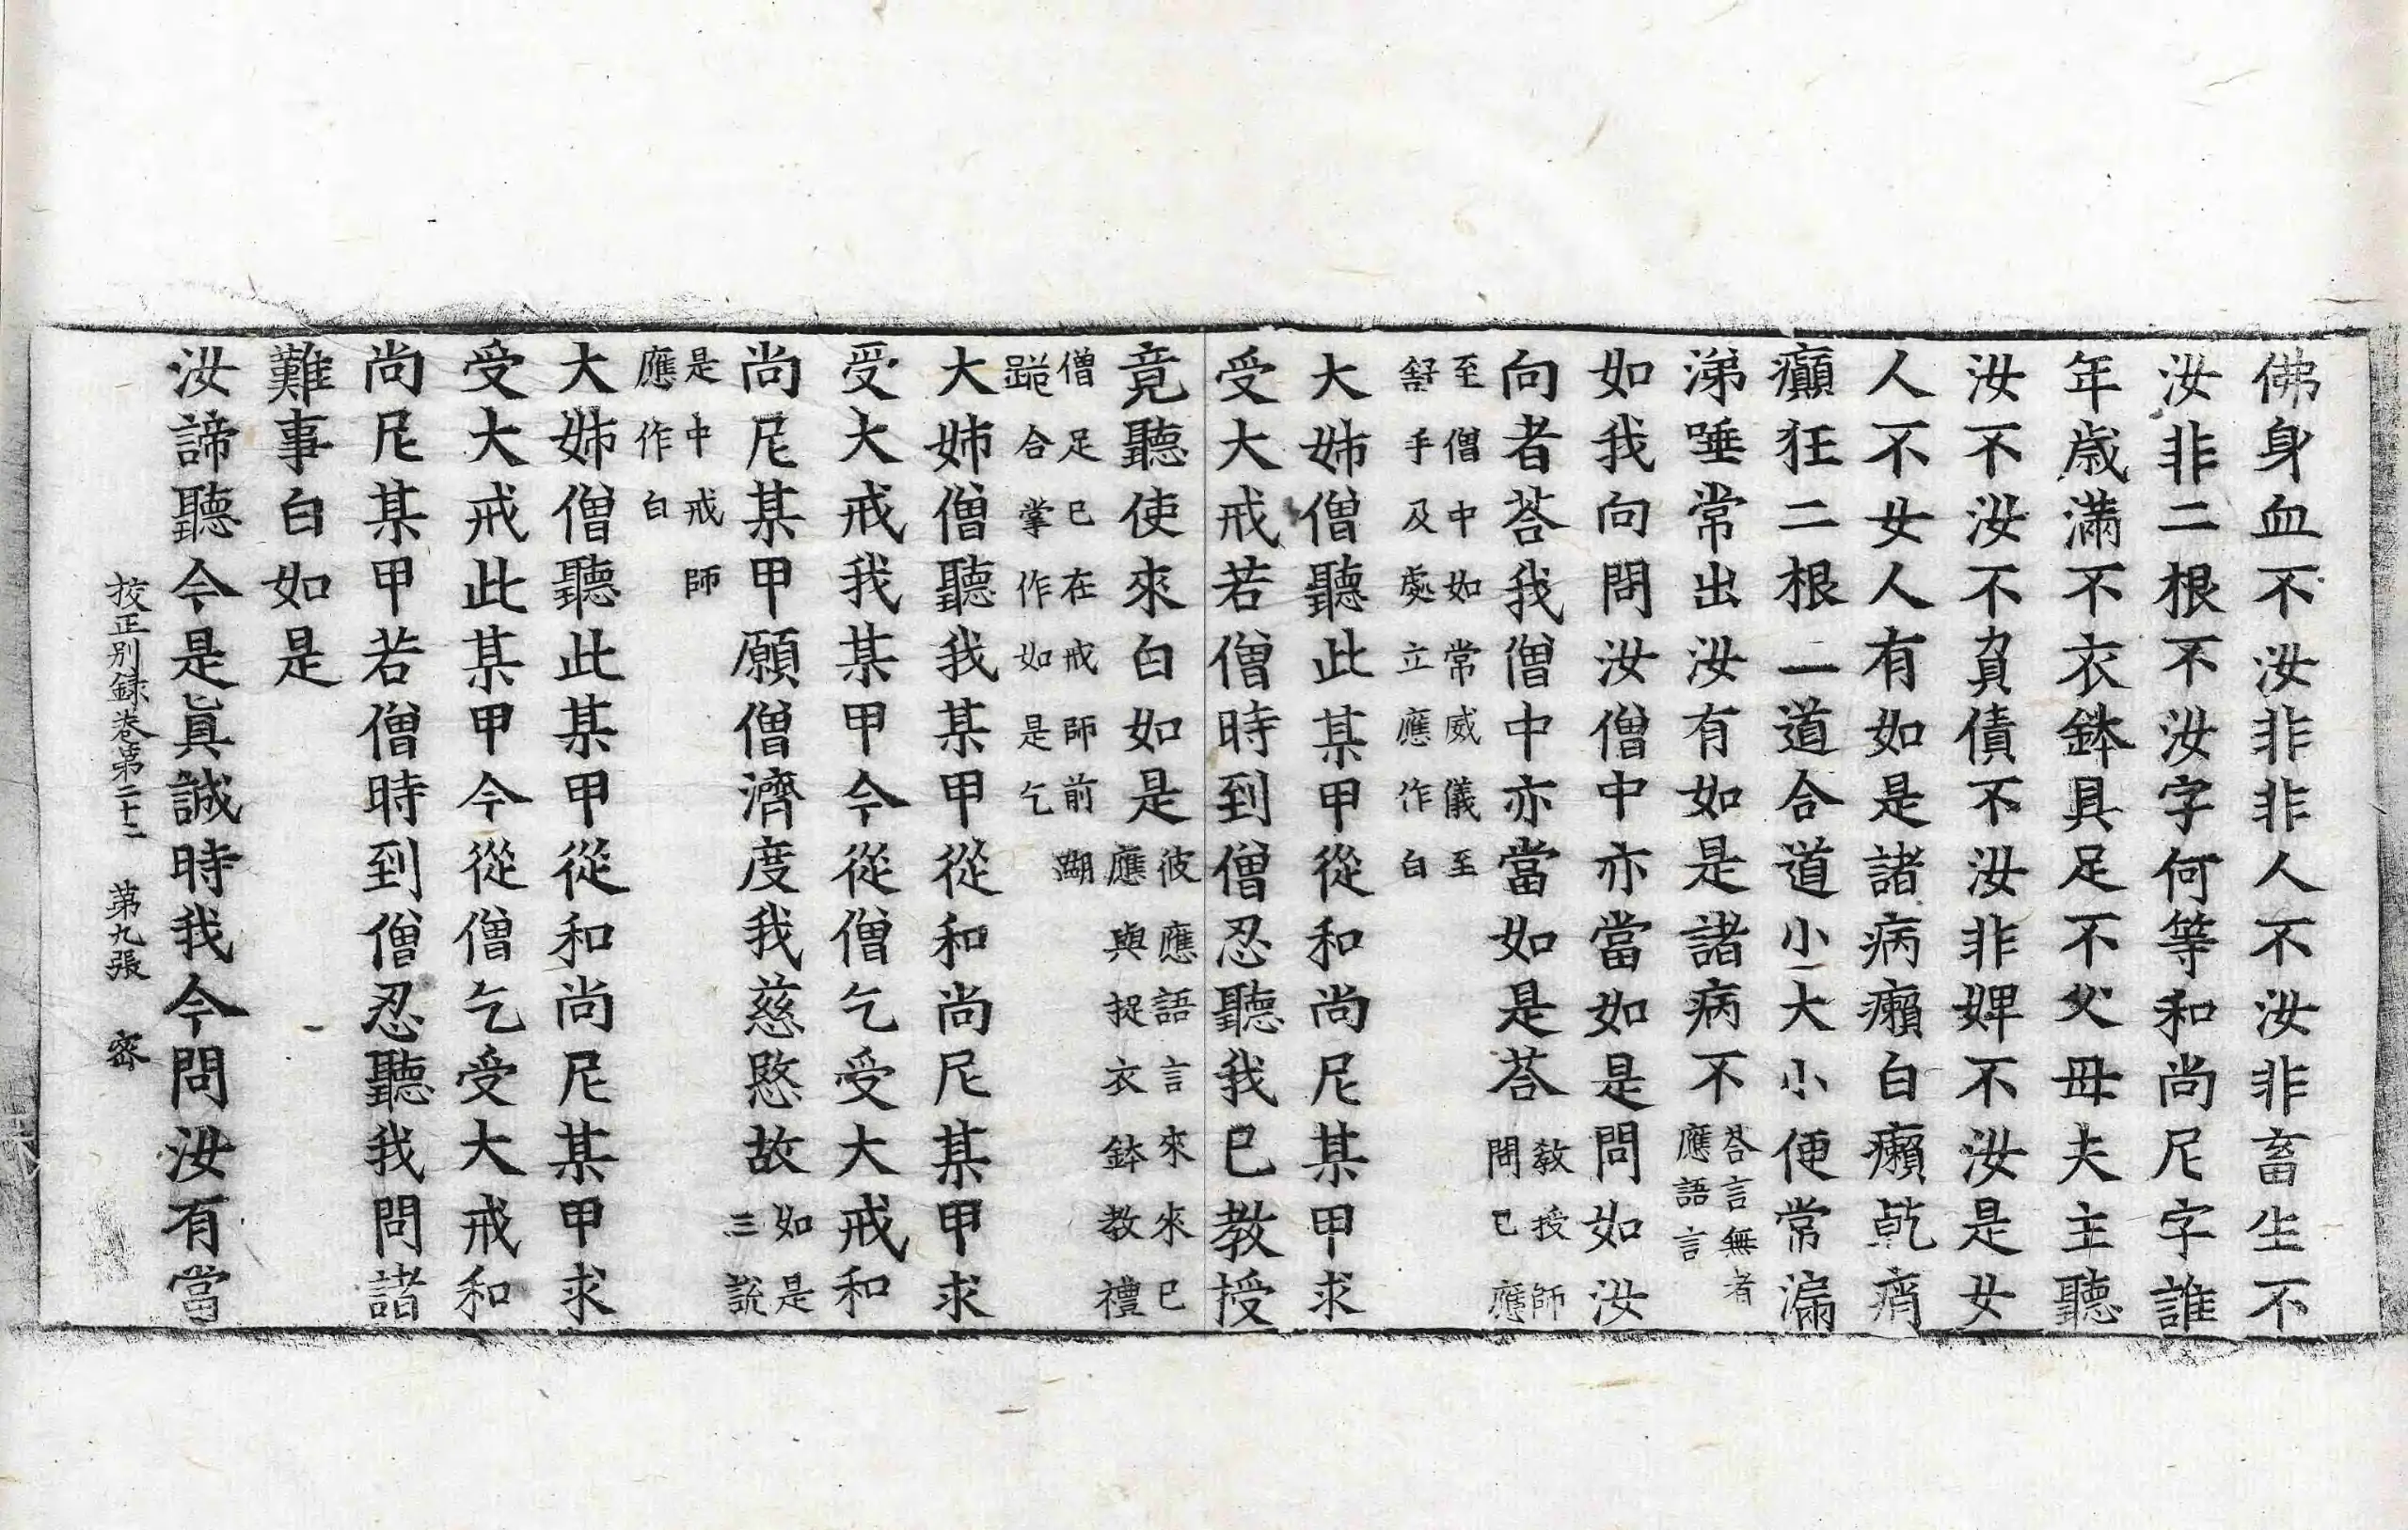 佛身血不汝非非人不汝非畜生不
汝非二根不汝字何等和尚尼字誰
年歲滿不衣鉢具足不父母夫主聽
汝不汝不負債不汝非婢不汝是女
人不女人有如是諸病癩白癩乾痟
癲狂二根二道合道小大小便常漏
涕唾常出汝有如是諸病不答言無者
應語言
如我向問汝僧中亦當如是問如汝
向者荅我僧中亦當如是荅教授師
問已應
至僧中如常威儀至
舒手及處立應作白
大姊僧聽此某甲從和尚尼某甲求
受大戒若僧時到僧忍聽我已教授
竟聽使來白如是彼應語言來來已
應與捉衣鉢教禮
僧足已在戒師前𨄔
跪合掌作如是乞
大姊僧聽我某甲從和尚尼某甲求
受大戒我某甲今從僧乞受大戒和
尚尼某甲願僧濟度我慈愍故如是
三說
是中戒師
應作白
大姊僧聽此某甲從和尚尼某甲求
受大戒此某甲今從僧乞受大戒和
尚尼某甲若僧時到僧忍聽我問諸
難事白如是
汝諦聽今是真誠時我今問汝有當
挍正別録卷第二十二　第九張　密